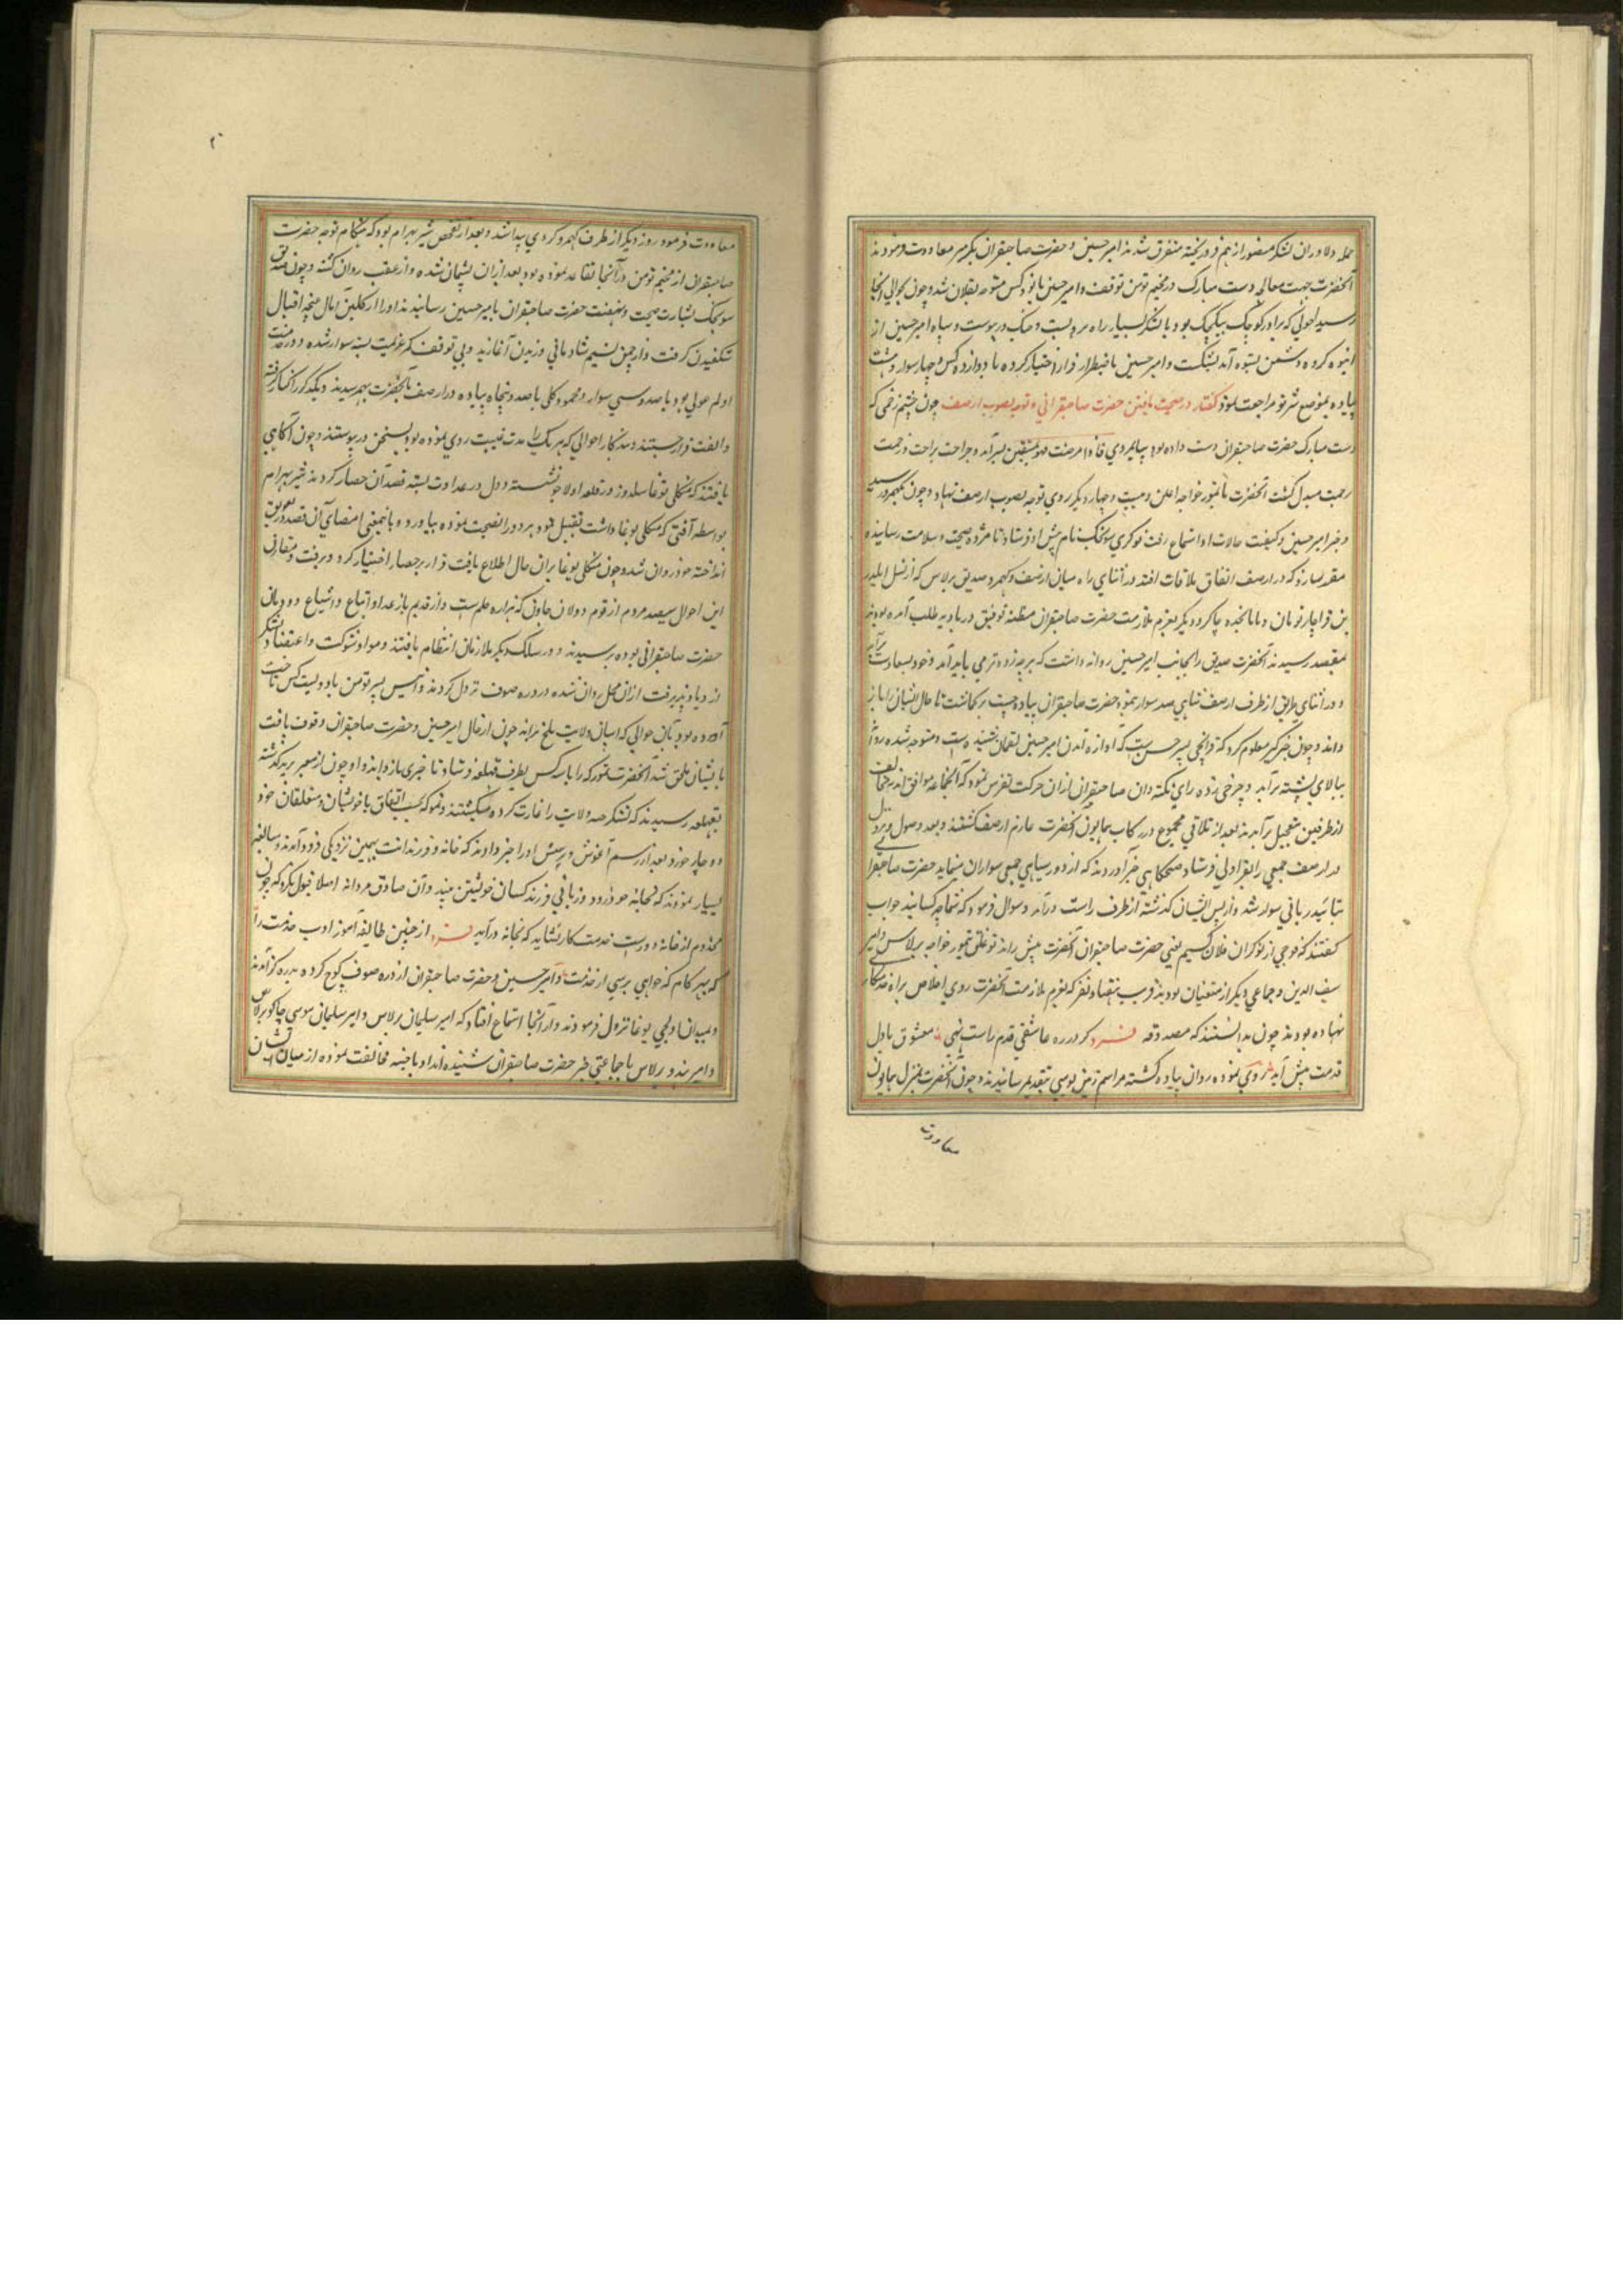 حمله دلاوران لشکر منصور از هم فرو ریخته متفرق شدند امیر حسین و حضرت صاحبقران بگرمسیر معاودت فرمودند
آنحضرت جهت معالجه دست مبارک در مخیم تومن توقف و امیر حسین با نود کس متوجه بقلان شد و چون بحوالی آنجا
رسید اجونی که برادر کوچک بیکجک بود با لشکر بسیار راه برو بست و جنک در پیوست و سپاه امیر حسین از
انبوه کروه دشمن بستوه آمد بشکست و امیر حسین باضطرار فرار اختیار کرده با دوازده کس چهار سوار و هشت
پیاده بموضع شرتو مراجعت نمود کفتار در صحت یافتن حضرت صاحبقرانی و توجه بصوب ارصف چون چشم زخمی که
دست مبارک حضرت صاحبقران دست داده بود بپایمردی فاذا مرضت فهو یشفین بسر آمد و جراحت براحت و زحمت
رحمت مبدل کشت آنحضرت با تیمور خواجه اغلن و بیست و چهار دیکر روی توجه بصوب ارصف نهاد و چون بکهمرد رسید
و خبر امیر حسین و کیفیت حالات او استماع رفت نوکری سونجک نام پیش او فرستاد تا مژده صحت و سلامت رسانیده
مقرر سازد که در ارصف اتفاق ملاقات افتد در اثنای راه میان ارصف و کهمرد صدیق برلاس که از نسل ایلدر
بن قراچار نویان و با پانجده چاکر و دیکر بعزم ملازمت حضرت صاحبقران مظنه توفیق در بادیه طلب آمده بود
بمقصد رسیدند آنحضرت صدیق را بجانب امیر حسین روانه داشت که هرچه زودتر می باید آمد و خود بسعادت
و در اثنای طریق از طرف ارصف شاهی صد سوار بنمود حضرت صاحبقران پیاده چست برکماشت تا حال ایشان را باز
داند و چون خبر کیر معلوم کرد که قرانجی پسر حسن است که آوازه آمدن امیر حسین بقمان شنیده است و متوجه شده
ببالای پشته برآمد و چرخی زده رای نکته دان صاحبقران ازان حرکت تفرس نمود که آنجماعه موافق اند
از طرفین بتعجیل برآمدند بعد از تلاقی مجموع در رکاب همایون آنحضرت عازم ارصف کشتند و بعد وصول و نزول
در ارصف جمعی را بقراولی فرستاد صبحکاهی خبر آوردند که از دور سیاهی جمعی سواران مینماید حضرت صاحبقران
بتائید ربانی سوار شد و از پس ایشان کذشته از طرف راست درآمد و سوال فرمود که شما چه کسانید جواب
کفتند که فوجی از نوکران فلان کسیم یعنی حضرت صاحبقران آنحضرت پیش راند توغلق تیمور خواجه برلاس و امیر
سیف الدین و جماعی دیکر از متعینان بودند قریب هفتاد نفر که بعزم ملازمت آنحضرت روی اخلاص براه
نهاده بودند چون بدانستند که مصدوقه فرد کر در ره عاشقی قدم راست نهی معشوق باول
قدمت پیش آید روی نموده روان پیاده کشته مراسم زمین بوسی بتقدیم رسانیدند و چون آنحضرت بمنزل همایون
معاودت
معاودت فرمود روز دیکر از طرف کهمرد کردی پیدا شد و بعد از تفحص شیر بهرام بود که هنکام توجه حضرت
صاحبقران از مخیم تومن در آنجا تقاعد نموده بود بعد ازان پشیمان شده و از عقب روان کشته و چون صدیق
سونجک بشارت صحت و نهضت حضرت صاحبقران بامیر حسین رسانیدند او را از کلبن آمال غنچه اقبال
شکفیدن کرفت و از چمن نسیم شادمانی وزیدن آغازید و بی توقف کمر عزیمت بسته سوار شده و در خدمت
اولم مولی بود با صد و سی سوار و محمود کلی با صد و پنجاه پیاده در ارصف بآنحضرت بهم رسیدند و یکدیکر را کنار کرفته
و الفت فرا جستند و بتذکار احوالی که هر یک را در مدت غیبت روی نموده بود بسخن در پیوستند و چون آکاهی
یافتند که منکلی بوغا سلدوز در قلعه اولاجو نشسته و دل در عداوت بسته قصد آن حصار کردند شیر بهرام
بواسطه آفتی که منکلی بوغا داشت تقبل نمود برود او را نصیحت نموده بیاورد و باینمعنی امضای آن قصد در تعویق
انداخته خود روان شد و چون منکلی بوغا بران حال اطلاع یافت فرار بر حصار اختیار کرد و برفت و مقارن
این احوال سیصد مردم از قوم دولان جاون که هزاره جلم است و از قدیم باز عداد اتباع و اشیاع دودمان
حضرت صاحبقرانی بوده برسیدند و در سلک دیکر ملازمان انتظام یافتند و مواد شوکت و اعتضاد لشکر
ازدیاد پذیرفت ازان محل روان شده در دره صوف نزول کردند و الیس پسر تومن با دویست کس
آمده بود بآن حوالی که اسپان ولایت بلخ براند چون از حال امیر حسین و حضرت صاحبقران وقوف یافت
بایشان ملحق شد آنحضرت تموکه را با سه کس بطرف قهلغه فرستاد تا خبری باز داند و او چون از معبر ترمذ کذشته
بقهلغه رسیدند که لشکر جته ولایت را غارت کرده میکشتند و تموکه بحسب اتفاق با خویشان و متعلقان خود
دوچار خورد بعد از رسم آغوش و پرسش او را خبر دادند که خانه و فرزندانت بهمین نزدیکی فرود آمدند و مبالغه
بسیار نمودند که بخانه خود رود و زمانی فرزند کسان خویشتن بیند و آن صادق مردانه اصلا قبول نکرد که چون
مخدوم از خانه دورست خدمتکار نشاید که بخانه درآید فرد از چنین طایفه آموز ادب خدمت را
که بهر کام که خواهی برسی از خدمت و امیر حسین و حضرت صاحبقران از دره صوف کوچ کرده بدره کز آمدند
و بمیدان اولجی بوغا نزول فرمودند و از آنجا استماع افتاد که امیر سلیمان برلاس و امیر سلیمان موسی چاکو برلاس
و امیر هندو برلاس با جماعتی خبر حضرت صاحبقران شنیده اند و با جته مخالفت نموده از میان ایشان